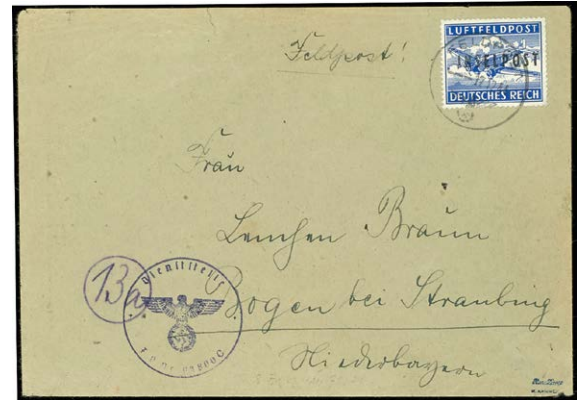 Feldpost!
LUFTFELDPOST
INSELPOST
DEUTSCHES REICH
Frau
Lenchen Braun
13a
Dienststelle
Bogen bei Straubing
Niederbayern